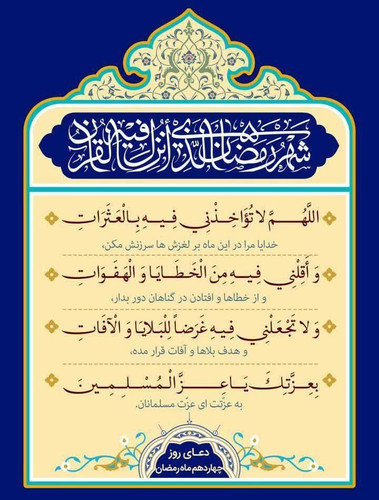 شهر رمضان الذی انزل فیه القرآن
اللَّهُمَّ لا تُؤَاخِذْنِي فِيهِ بِالْعَثَرَاتِ
خدایا مرا در این ماه بر لغزش ها سرزنش مکن،
وَ أَقِلْنِي فِيهِ مِنَ الْخَطَايَا وَ الْهَفَوَاتِ
و از خطاها و افتادن در گناهان دور بدار،
وَ لا تَجْعَلْنِي فِيهِ غَرَضاً لِلْبَلايَا وَ الْآفَاتِ
و هدف بلاها و آفات قرار مده،
بِعِزَّتِكَ يَا عِزَّ الْمُسْلِمِينَ
به عزّتت ای عزّت مسلمانان.
دعای روز
چهاردهم ماه رمضان